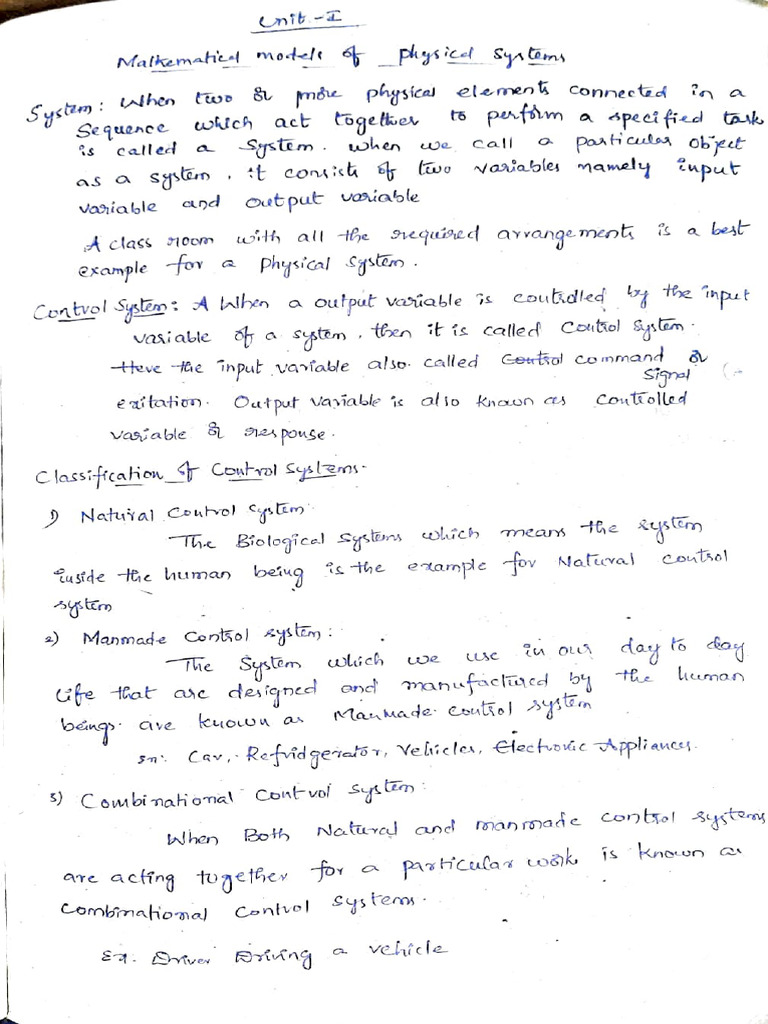 Unit.-I
Mathematical models of physical systems
System: When two or more physical elements connected in a
sequence which act together to perform a specified task
is called a system. when we call a particular object
as a system, it consists of two variables namely input
variable and output variable
A class room with all the required arrangements is a best
example for a Physical System.
Control System: A When a output variable is controlled by the input
variable of a system, then it is called Control System.
Here the input variable also called Control command or
signal
exitation. Output variable is also known as controlled
variable or response.
Classification of Control Systems.
1) Natural Control System
The Biological Systems which means the system
inside the human being is the example for Natural control
system
2) Manmade Control System:
The System which we use in our day to day
life that are designed and manufactured by the human
beings. are known as Manmade control system
Car, Refridgerator, Vehicles, Electronic Appliances.
3) Combinational Control System:
When Both Natural and manmade control systems
are acting together for a particular work is known as
Combinational Control Systems.
Ex. Driver Driving a vehicle